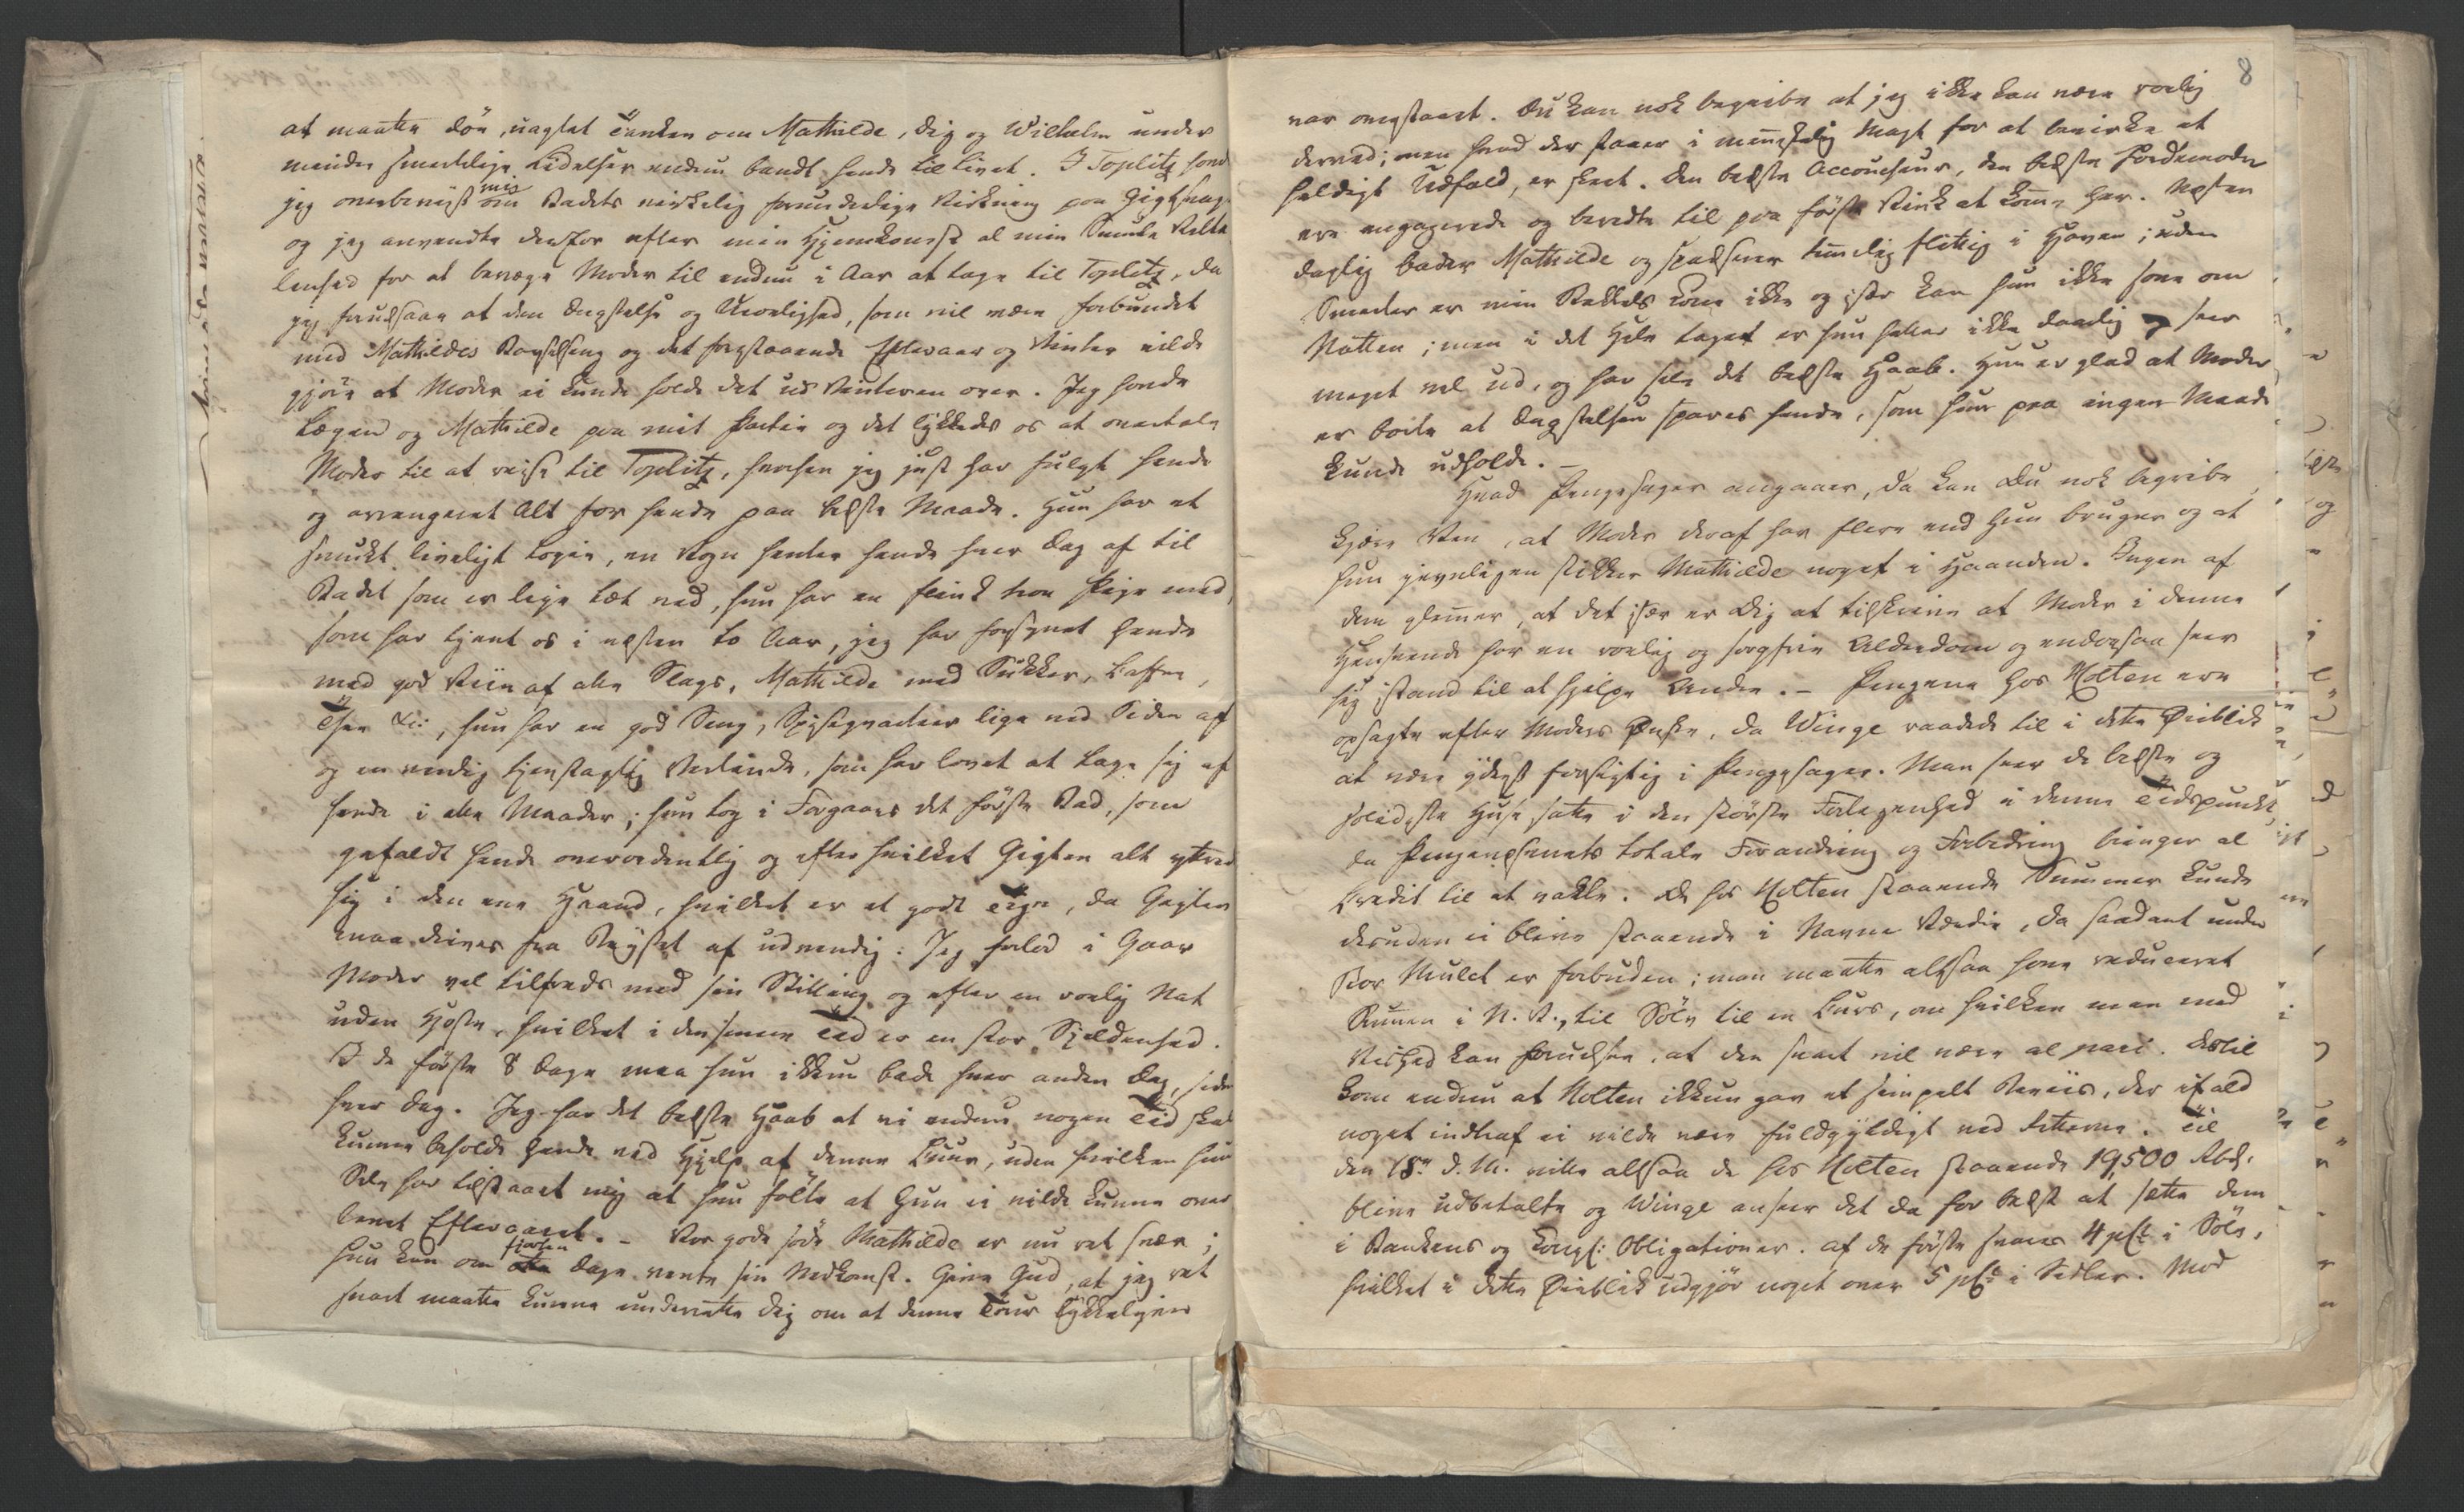 at maatte döe, uagtet Tanken om Mathilde, Dig og Wilhelm under
mindre smertelige Lidelser endnu bandt hende til Livet. I Toplitz
jeg overbeviist mig om Badets virkelig forunderlige Virkning paa
og jeg anvendte derfor efter min Hjemkomst al min
for at bevæge Moder til endnu i Aar at tage til Toplitz, da
jeg forudsaae at den Ængstelse og Uroelighed, som vil være forbundet
med Mathildes Barselseng og det forestaaende Efteraar og Vinter vilde
gjöre at Moder ei kunde holde det ud Vinteren over. Jeg havde
Lægen og Mathilde paa mit Partie og det lykkedes os at overtale
Moder til at reise til Toplitz, hvorhen jeg just har fulgt hende
og arrangeret Alt for hende paa bedste Maade. Hun har et
smukt liveligt Logie, en Vogn henter hende hver Dag af til
Badet som er lige tæt ved, hun har en flink troe Pige med,
som har tjent os i næsten to Aar, jeg har forsynet hende
med god Viin af alle Slags, Mathilde med Sukker, Caffee,
Thee &c:, hun har en god Seng, Spiseqvarteer lige ved Siden af
og en venlig tjenstagtig Vertinde, som har lovet at tage sig af
hende i alle Maader; hun tog i Forgaars det förste Bad, som
gefaldt hende overordentlig og efter hvilket Gigten alt yttred
sig i den ene Haand, hvilket er et godt Tegn, da Gigten
maa drives fra Brystet af udvendig: Jeg forlod i Gaar
Moder vel tilfreds med sin Stilling og efter en roelig Nat
uden Hoste, hvilket i den senere Tid er en stor Sieldenhed.
I de förste 8 Dage maa hun ikkun bade hver anden Dag, siden
hver Dag. Jeg har det bedste Haab at vi endnu nogen Tid skal
kunne beholde hende ved Hjelp af denne Cuur, uden hvilken hun
Selv har tilstaaet mig at hun fölte at Hun ei vilde kunne over
levet Efteraaret. – Vor gode söde Mathilde er nu ret svær;
hun kan om fjorten Dage vente sin Nedkomst. Give Gud, at jeg ret
snart maatte kunne underrette Dig om at denne Tour lykkeligen
8
var overstaaet. Du kan nok begribe at jeg ikke kan være roelig
derved; men hvad der staaer i menneskelig Magt for at bevirke et
heldigt Udfald, er skeet. Den bedste Accoucheur, den bedste Jordemoder
ere engagerede og beredte til paa förste Vink at komme her. Næsten
daglig bader Mathilde og spadserer temmelig flittig i Haven; uden
Smerter er min Stakkels Kone ikke og især kan hun ikke sove om
Natten; men i det Hele taget er hun heller ikke daarlig, seer
meget vel ud, og har selv det bedste Haab. Hun er glad at Moder
er borte at Ængstelsen spares hende, som hun paa ingen Maade
kunde udholde. –
Hvad Pengesager angaaer, da kan Du nok begribe
kjere Ven, at Moder deraf har flere end Hun bruger og at
hun jevnligen stikker Mathilde noget i Haanden. Ingen af
dem glemmer, at det især er Dig at tilskrive at Moder i denne
Henseende har en roelig og sorgfrie Alderdom og endogsaa seer
sig istand til at hjelpe Andre. – Pengene hos Holten ere
opsagte efter Moders Ønske, da Winge raadede til i dette Øieblik
at være yderst forsigtig i Pengesager. Man seer de bedste og
solideste Huse satte i den störste Forlegenhed i denne Tidspunkt,
da Pengevæsenets totale Forandring og Forbedring bringer al
Credit til at vakle. De hos Holten staaende Summer kunde
desuden ei blive staaende i Navne Værdie, da saadant under
stor Mulct er forbuden; man maatte altsaa have reduceret
Summen i N. V., til Sölv til en Curs, om hvilken man med
Vished kan forudsee, at den snart vil være al pari. Dertil
kom endnu at Holten ikkun gav et simpelt Beviis, der ifald
noget indtraf ei vilde være fuldgyldigt ved Retterne. Til
den 18de d. M. ville altsaa de hos Holten staaende 19,500 Rbd.
blive udbetalte og Winge anseer det da for bedst at sette dem
i Bankens og Kongl: Obligationer. Af de förste svares 4 pCt i Sölv,
hvilket i dette Øieblik udgjör noget over 5 pCt i Sedler. Mod